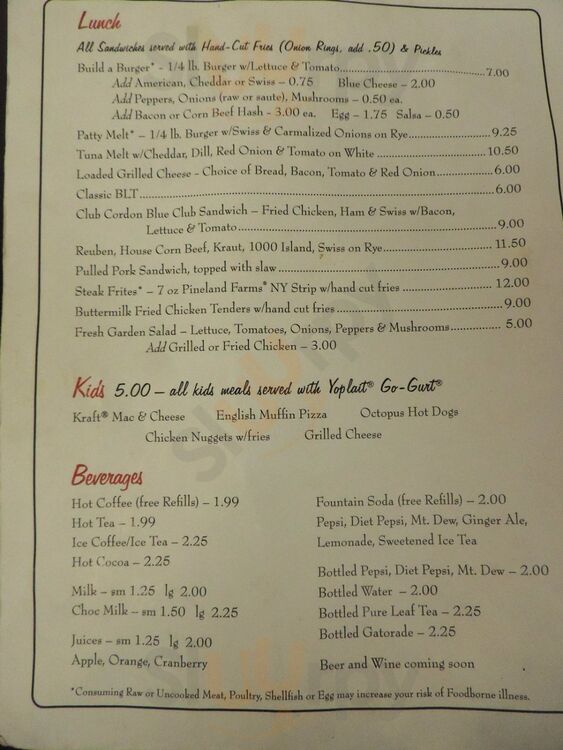 Lunch
All Sandwiches served with Hand-Cut Fries (Onion Rings, add .50) & Pickles
Build a Burger* - 1/4 lb. Burger w/Lettuce & Tomato.......................................7.00
Add American, Cheddar or Swiss – 0.75 Blue Cheese – 2.00
Add Peppers, Onions (raw or saute), Mushrooms – 0.50 ea.
Add Bacon or Corn Beef Hash - 3.00 ea. Egg – 1.75 Salsa – 0.50
Patty Melt* – 1/4 lb. Burger w/Swiss & Carmalized Onions on Rye......................9.25
Tuna Melt w/Cheddar, Dill, Red Onion & Tomato on White .............................10.50
Loaded Grilled Cheese - Choice of Bread, Bacon, Tomato & Red Onion...............6.00
Classic BLT..........................................................................................6.00
Club Cordon Blue Club Sandwich – Fried Chicken, Ham & Swiss w/Bacon,
Lettuce & Tomato.....................................................................9.00
Reuben, House Corn Beef, Kraut, 1000 Island, Swiss on Rye............................. 11.50
Pulled Pork Sandwich, topped with slaw.........................................................9.00
Steak Frites* – 7 oz Pineland Farms® NY Strip w/hand cut fries ........................ 12.00
Buttermilk Fried Chicken Tenders w/hand cut fries...........................................9.00
Fresh Garden Salad – Lettuce, Tomatoes, Onions, Peppers & Mushrooms.............. 5.00
Add Grilled or Fried Chicken – 3.00
Kids 5.00 – all kids meals served with Yoplait® Go-Gurt®
Kraft® Mac & Cheese English Muffin Pizza Octopus Hot Dogs
Chicken Nuggets w/fries Grilled Cheese
Beverages
Hot Coffee (free Refills) – 1.99
Hot Tea – 1.99
Ice Coffee/Ice Tea – 2.25
Hot Cocoa – 2.25
Milk – sm 1.25 lg 2.00
Choc Milk – sm 1.50 lg 2.25
Juices – sm 1.25 lg 2.00
Apple, Orange, Cranberry
Fountain Soda (free Refills) – 2.00
Pepsi, Diet Pepsi, Mt. Dew, Ginger Ale,
Lemonade, Sweetened Ice Tea
Bottled Pepsi, Diet Pepsi, Mt. Dew – 2.00
Bottled Water – 2.00
Bottled Pure Leaf Tea – 2.25
Bottled Gatorade – 2.25
Beer and Wine coming soon
*Consuming Raw or Uncooked Meat, Poultry, Shellfish or Egg may increase your risk of Foodborne illness.